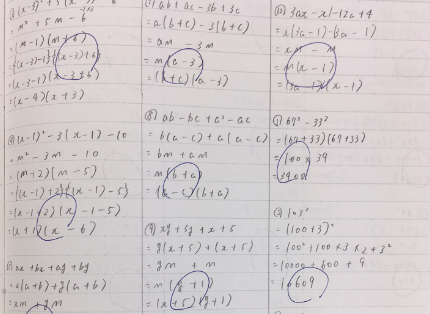 = m² + 5m - 6
= (m-1)(m+6)
= {(x-3)-1}{(x-3)+6}
= (x-3-1)(x-3+6)
= (x-4)(x+3)
(x-1)² - 3(x-1) - 10
= m² - 3m - 10
= (m+2)(m-5)
= {(x-1)+2}{(x-1)-5}
= (x-1+2)(x-1-5)
= (x+1)(x-6)
ax + bx + ay + by
= x(a+b) + y(a+b)
= xm + ym
ab + ac - 3b - 3c
= a(b+c) - 3(b+c)
= am - 3m
= m(a-3)
= (b+c)(a-3)
(8) ab - bc + a² - ac
= b(a-c) + a(a-c)
= bm + am
= m(b+a)
= (a-c)(b+a)
(9) xy + 5y + x + 5
= y(x+5) + (x+5)
= ym + m
= m(y+1)
= (x+5)(y+1)
3ax - x - 12a + 4
67² - 33²
= (67+33)(67+33)
= 100 x 34
= 3400
103²
= (100+3)²
= 100² + 100 x 3 x 2 + 3²
= 10000 + 600 + 9
= 10609